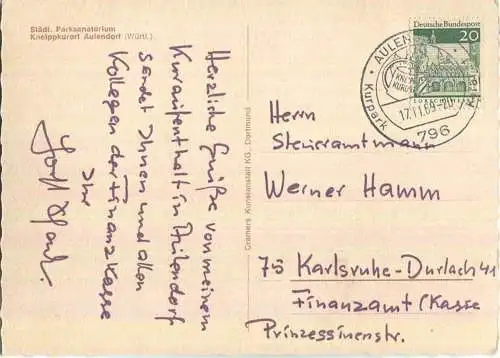 Städt. Parksanatorium
Kneippkurort Aulendorf (Württ.)
Herzliche Grüße von meinem
Kuraufenthalt in Aulendorf
sendet Ihnen und allen
Kollegen der Finanzkasse
Ihr
Cramers Kunstanstalt KG., Dortmund
Deutsche Bundespost
20
AULEN
Kurpark
17.11.69-20
796
Herrn
Steueramtmann
Werner Hamm
75 Karlsruhe-Durlach 41
Finanzamt/Kasse
Prinzessinenstr.